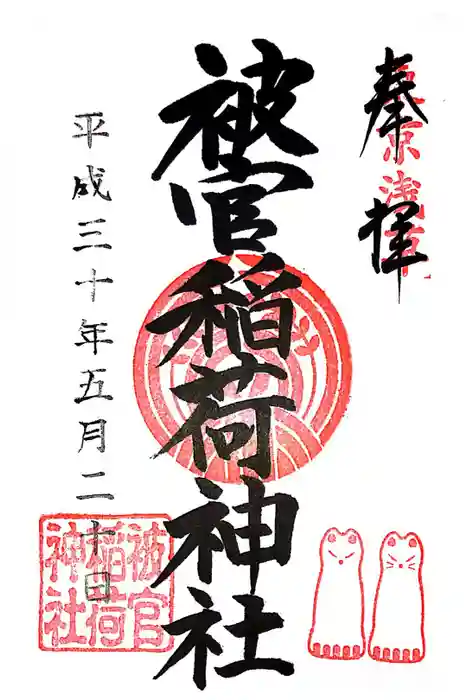 奉拝
東京浅草
被官稲荷神社
平成三十年五月二十日
被官
稲荷
神社